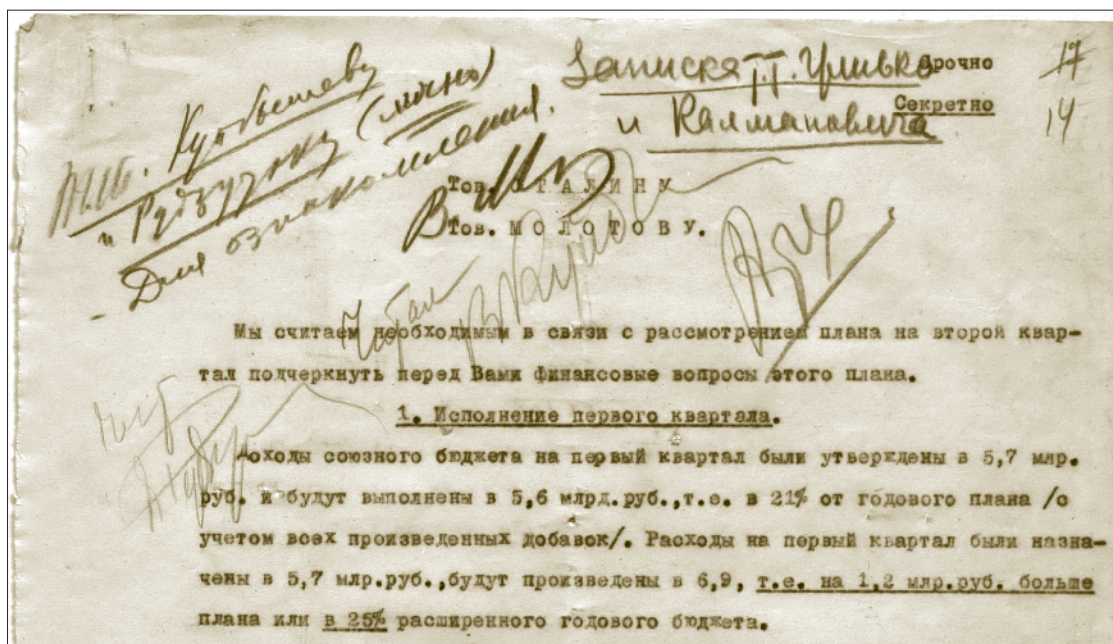 Записка т.т. Гринько
и Калмановича
Срочно
Секретно
17
14
т.т. Куйбышеву
и Рудзутаку (лично)
Для ознакомления.
Тов. СТАЛИНУ
Тов. МОЛОТОВУ.
Читал
В Куйб
Мы считаем необходимым в связи с рассмотрением плана на второй квар-
тал подчеркнуть перед Вами финансовые вопросы этого плана.
1. Исполнение первого квартала.
Доходы союзного бюджета на первый квартал были утверждены в 5,7 млр.
руб. и будут выполнены в 5,6 млрд.руб.,т.е. в 21% от годового плана /с
учетом всех произведенных добавок/. Расходы на первый квартал были назна-
чены в 5,7 млр.руб.,будут произведены в 6,9, т.е. на 1,2 млр.руб. больше
плана или в 25% расширенного годового бюджета.